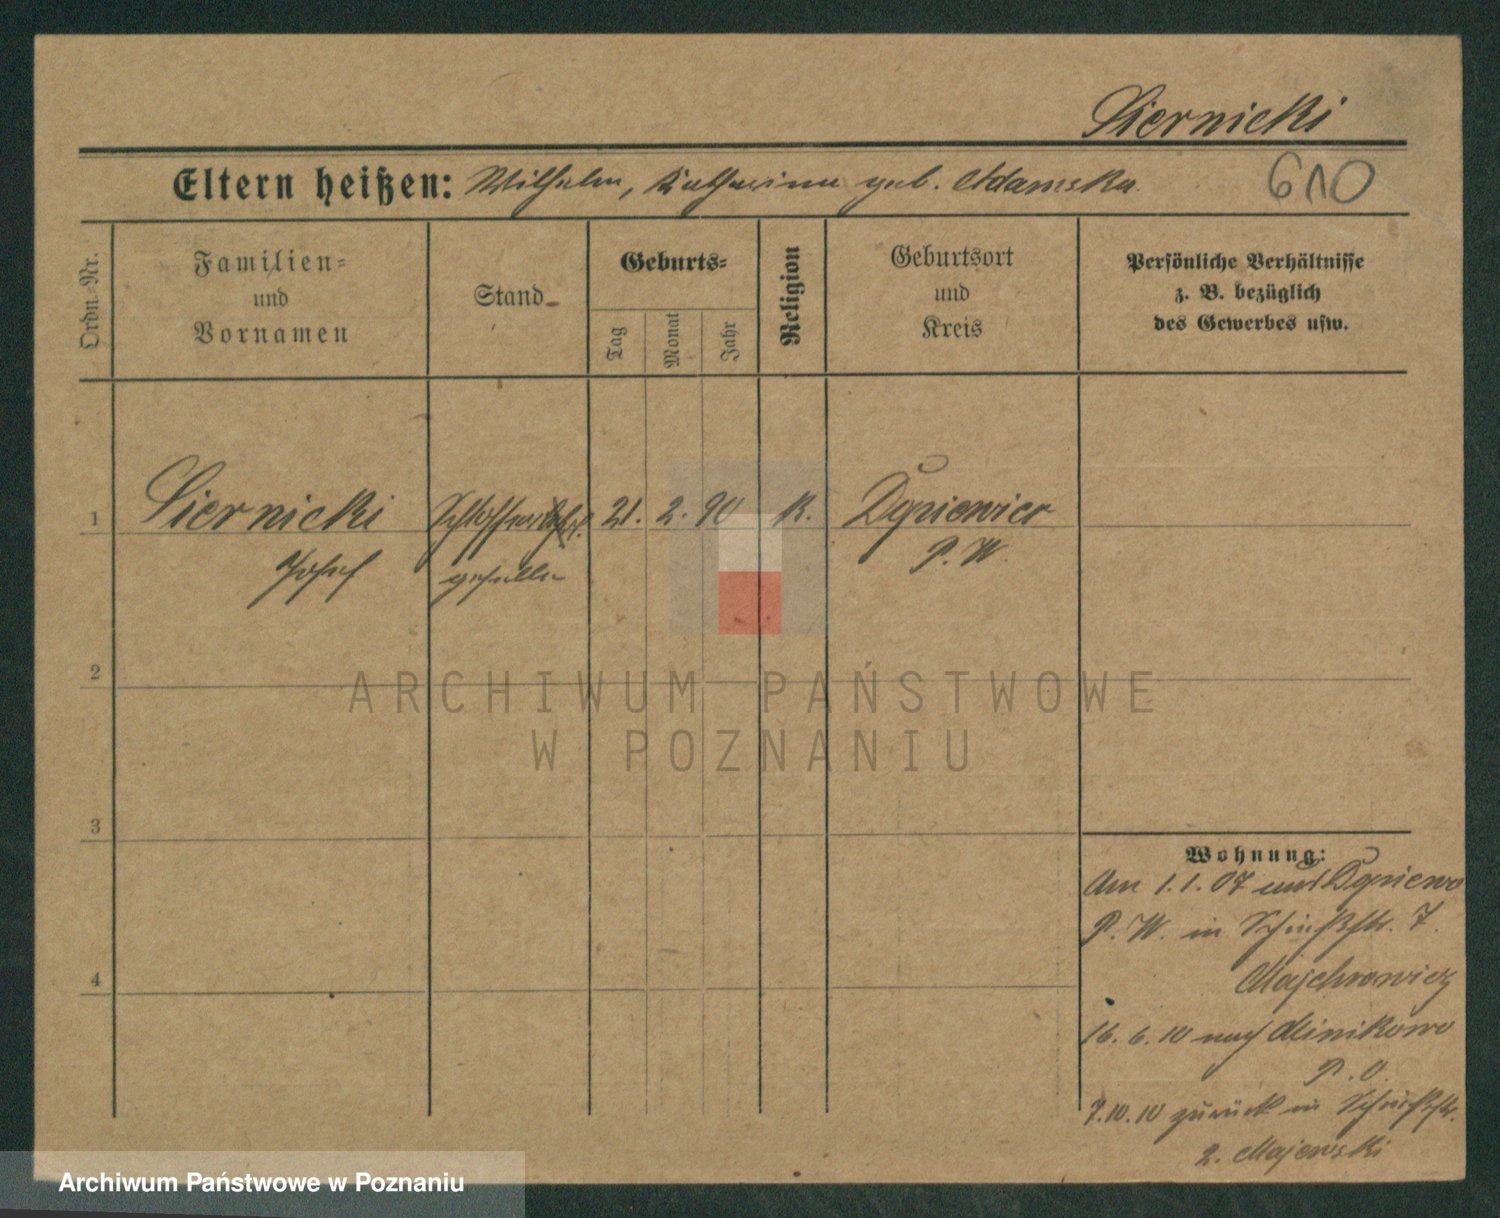 Siernicki
Eltern heißen: Wilhelm, Katharina geb. Adamska.
610
Ordn.-Nr.
Familien-
und
Vornamen
Stand
Geburts-
Tag
Monat
Jahr
Religion
Geburtsort
und
Kreis
Persönliche Verhältnisse
z. B. bezüglich
des Gewerbes usw.
1 Siernicki Schlosser 21. 2. 90 K.
Josef geselle P. W.
2
ARCHIWUM PAŃSTWOWE
W POZNANIU
3
Wohnung:
Am 1.1.07 aus
P. W. in Schießstr. 7.
Majchrowicz
4
16. 6. 10 nach Minikowo
P. O.
7.10.10 zurück in Schießstr.
2. Majewski
Archiwum Państwowe w Poznaniu